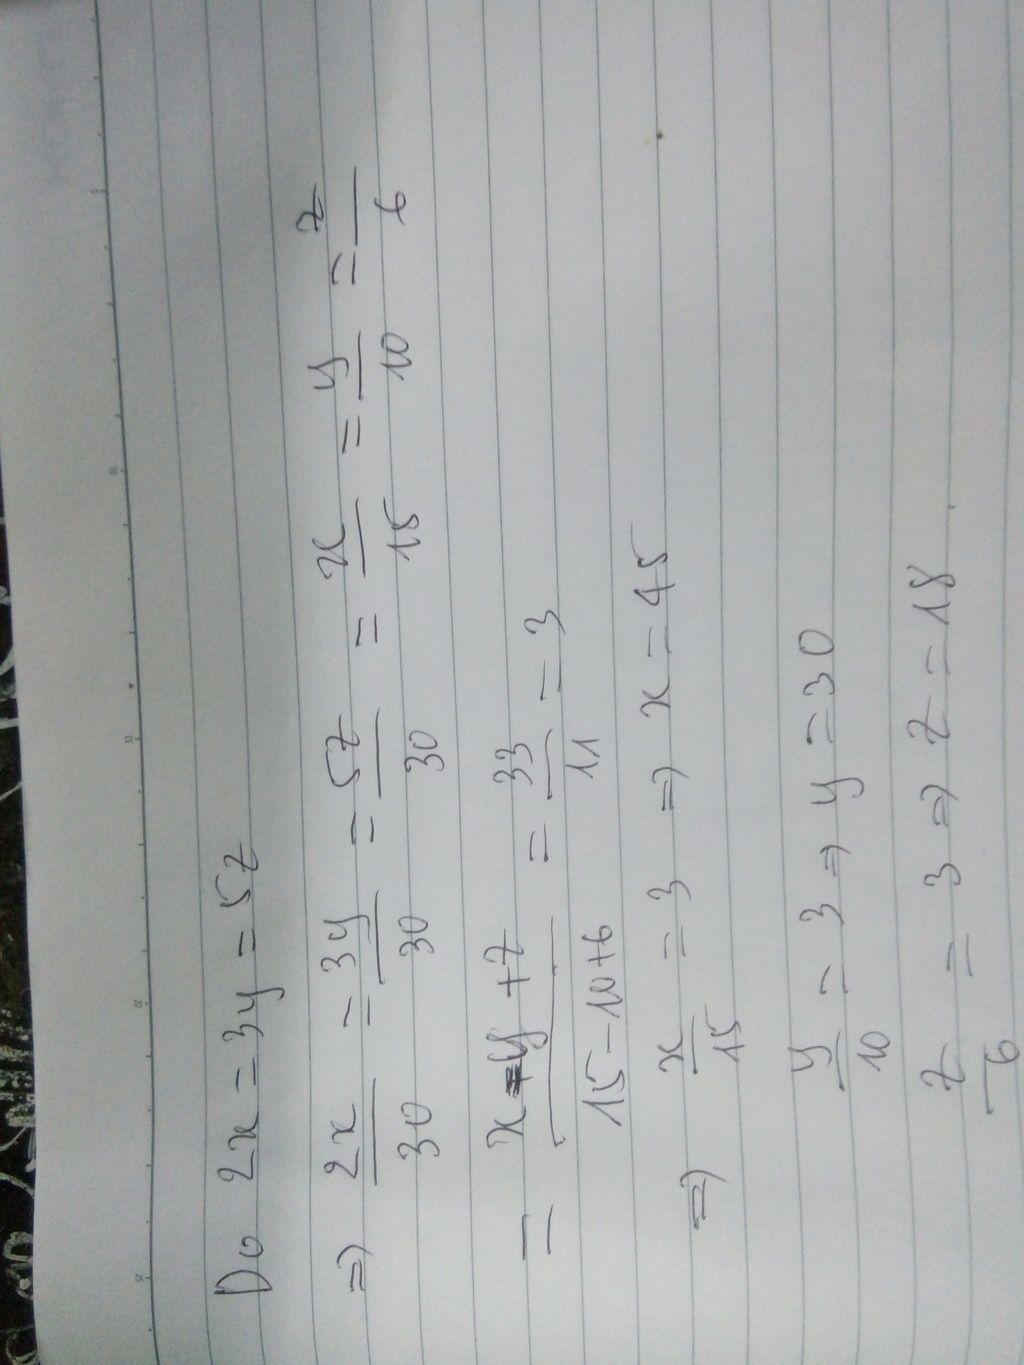 Do 2x = 3y = 5z
=> 2x/30 = 3y/30 = 5z/30 = x/15 = y/10 = z/6
= x-y+z/15-10+6 = 33/11 = 3
=> x/15 = 3 => x = 45
y/10 = 3 => y = 30
z/6 = 3 => z = 18.